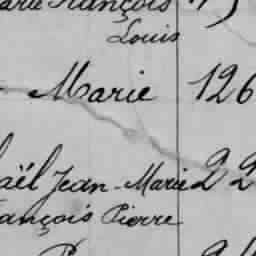 François
Louis
Marie 126
aël Jean-Marie 22
ançois Pierre